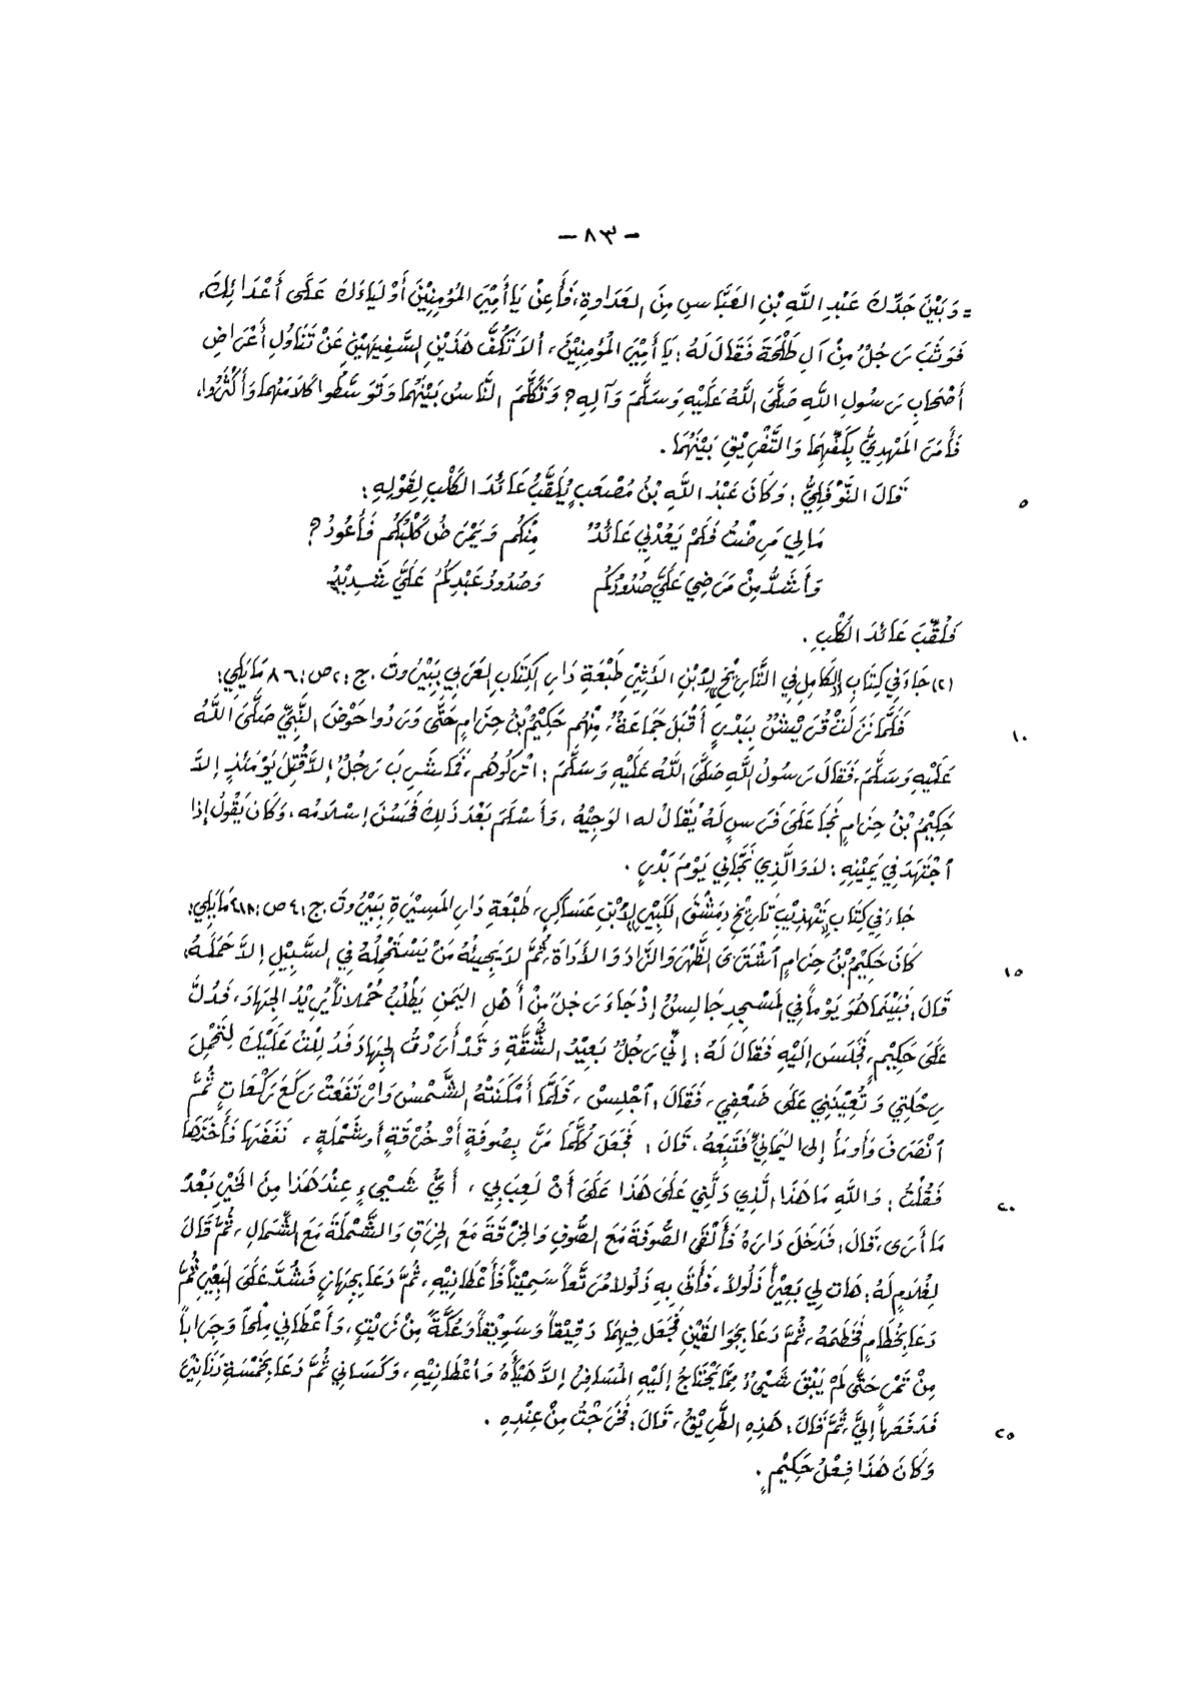 - ٨٣ -
= وَبَيْنَ جَدِّكَ عَبْدِ اللَّهِ بْنِ العَبَّاسِ مِنَ العَدَاوَةِ، فَأَعِنْ يَا أَمِيْرَ المُؤْمِنِيْنَ أَوْلِيَاءَكَ عَلَى أَعْدَائِكَ،
فَوَثَبَ رَجُلٌ مِنْ آلِ طَلْحَةَ فَقَالَ لَهُ: يَا أَمِيْرَ المُؤْمِنِيْنَ، أَلاَ تَكُفَّ هَذَيْنِ السَّفِيهَيْنِ عَنْ تَنَاوُلِ أَعْرَاضِ
أَصْحَابِ رَسُولِ اللَّهِ صَلَّى اللَّهُ عَلَيْهِ وَسَلَّمَ وَآلِهِ؟ وَتَكَلَّمَ النَّاسُ بَيْنَهُمَا وَتَوَسَّطُوا كَلاَمَهُمَا وَأَكْثَرُوا،
فَأَمَرَ المَهْدِيُّ بِكَفِّهِمَا وَالتَّفْرِيْقِ بَيْنَهُمَا.
قَالَ النَّوْفَلِيُّ: وَكَانَ عَبْدُ اللَّهِ بْنُ مُصْعَبٍ يُلَقَّبُ عَائِدَ الكَلْبِ لِقَوْلِهِ: ٥
مَا لِي مَرِضْتُ فَلَمْ يَعُدْنِي عَائِدٌ مِنْكُم وَيَمْرَضُ كَلْبُكُم فَأَعُودُ؟
وَأَشَدُّ مِنْ مَرَضِي عَلَيَّ صُدُودُكُم وَصُدُودُ عَبْدِكُمُ عَلَيَّ شَدِيْدُ
فَلُقِّبَ عَائِدَ الكَلْبِ.
(٢) جَاءَ فِي كِتَابِ «الكَامِلِ فِي التَّارِيْخِ» لِابْنِ الأَثِيْرِ طَبْعَةِ دَارِ الكِتَابِ العَرَبِي بِبَيْرُوتَ. ج: ٢ ص: ٨٦ مَا يَلِي:
فَلَمَّا نَزَلَتْ قُرَيْشٌ بِبَدْرٍ أَقْبَلَ جَمَاعَةٌ، مِنْهُم حَكِيْمُ بْنُ حِزَامٍ حَتَّى وَرَدُوا حَوْضَ النَّبِيِّ صَلَّى اللَّهُ ١٠
عَلَيْهِ وَسَلَّمَ، فَقَالَ رَسُولُ اللَّهِ صَلَّى اللَّهُ عَلَيْهِ وَسَلَّمَ: اتْرُكُوهُم، فَمَا شَرِبَ رَجُلٌ إِلاَّ قُتِلَ يَوْمَئِذٍ إِلاَّ
حَكِيْمُ بْنُ حِزَامٍ نَجَا عَلَى فَرَسٍ لَهُ يُقَالُ لَه الوَجِيْهُ، وَأَسْلَمَ بَعْدَ ذَلِكَ فَحَسُنَ إِسْلاَمُه، وَكَانَ يَقُولُ إِذَا
اجْتَهَدَ فِي يَمِيْنِهِ: لاَ وَالَّذِي نَجَّانِي يَوْمَ بَدْرٍ.
جَاءَ فِي كِتَابِ «تَهْذِيْبِ تَارِيْخِ دِمَشْقَ الكَبِيْرِ» لِابْنِ عَسَاكِرٍ، طَبْعَةِ دَارِ المَسِيْرَةِ بِبَيْرُوتَ. ج: ٤ ص: ٤١٨ مَا يَلِي:
كَانَ حَكِيْمُ بْنُ حِزَامٍ اشْتَرَى الظَّهْرَ وَالزَّادَ وَالأَدَاةَ، ثُمَّ لاَ يَجِيئُهُ مَنْ يَسْتَحْمِلُهُ فِي السَّبِيْلِ إِلاَّ حَمَلَهُ، ١٥
قَالَ: فَبَيْنَمَا هُوَ يَوْماً فِي المَسْجِدِ جَالِسٌ إِذْ جَاءَ رَجُلٌ مِنْ أَهْلِ اليَمَنِ يَطْلُبُ حُمْلاَناً يُرِيْدُ الجِهَادَ، فَدُلَّ
عَلَى حَكِيْمٍ، فَجَلَسَ إِلَيْهِ فَقَالَ لَهُ: إِنِّي رَجُلٌ بَعِيْدُ الشُّقَّةِ وَقَدْ أَرَدْتُ الجِهَادَ فَدُلِلْتُ عَلَيْكَ لِتَحْمِلَ
رِحْلَتِي وَتُعِيْنَنِي عَلَى ضَعْفِي، فَقَالَ: اجْلِسْ، فَلَمَّا أَمْكَنَتْهُ الشَّمْسُ وَارْتَفَعَتْ رَكَعَ رَكَعَاتٍ ثُمَّ
انْصَرَفَ وَأَومَأَ إِلَى اليَمَانِيِّ فَتَبِعَهُ، قَالَ: فَجَعَلَ كُلَّمَا مَرَّ بِصُوفَةٍ أَوْ خُرْقَةٍ أَو شَمْلَةٍ، نَفَضَهَا فَأَخَذَهَا
فَقُلْتُ: وَاللَّهِ مَا هَذَا الَّذِي دَلَّنِي عَلَى هَذَا عَلَى أَنْ لَعِبَ بِي، أَيُّ شَيْءٍ عِنْدَ هَذَا مِنَ الخَيْرِ بَعْدَ ٢٠
مَا أَرَى، قَالَ: فَدَخَلَ دَارَهُ فَأَلْقَى الصُّوفَةَ مَعَ الصُّوفِ وَالخِرْقَةَ مَعَ الخِرَقِ وَالشَّمْلَةَ مَعَ الشِّمَالِ، ثُمَّ قَالَ
لِغُلاَمٍ لَهُ: هَاتِ لِي بَعِيْراً ذَلُولاً، فَأُتِيَ بِهِ ذَلُولاً مُرَتَّعاً سَمِيْناً فَأَعْطَانِيْهِ، ثُمَّ دَعَا بِجِهَازٍ فَشُدَّ عَلَى البَعِيْرِ ثُمَّ
دَعَا بِخُطَامٍ فَخَطَمَهُ، ثُمَّ دَعَا بِجُوَالِقَيْنِ فَجَعَلَ فِيهِمَا دَقِيْقاً وَسَوِيْقاً وَعُكَّةً مِنْ زَيْتٍ، وَأَعْطَانِي مِلْحاً وَجِرَاباً
مِنْ تَمْرٍ حَتَّى لَمْ يَبْقَ شَيْءٌ مِمَّا يَحْتَاجُ إِلَيْهِ المُسَافِرُ إِلاَّ هَيَّأَهُ وَأَعْطَانِيْهِ، وَكَسَانِي ثُمَّ دَعَا بِخَمْسَةِ دَنَانِيْرَ
فَدَفَعَهَا إِلَيَّ، ثُمَّ قَالَ: هَذِهِ الطَّرِيْقُ، قَالَ: فَخَرَجْتُ مِنْ عِنْدِهِ. ٢٥
وَكَانَ هَذَا فِعْلُ حَكِيْمٍ.